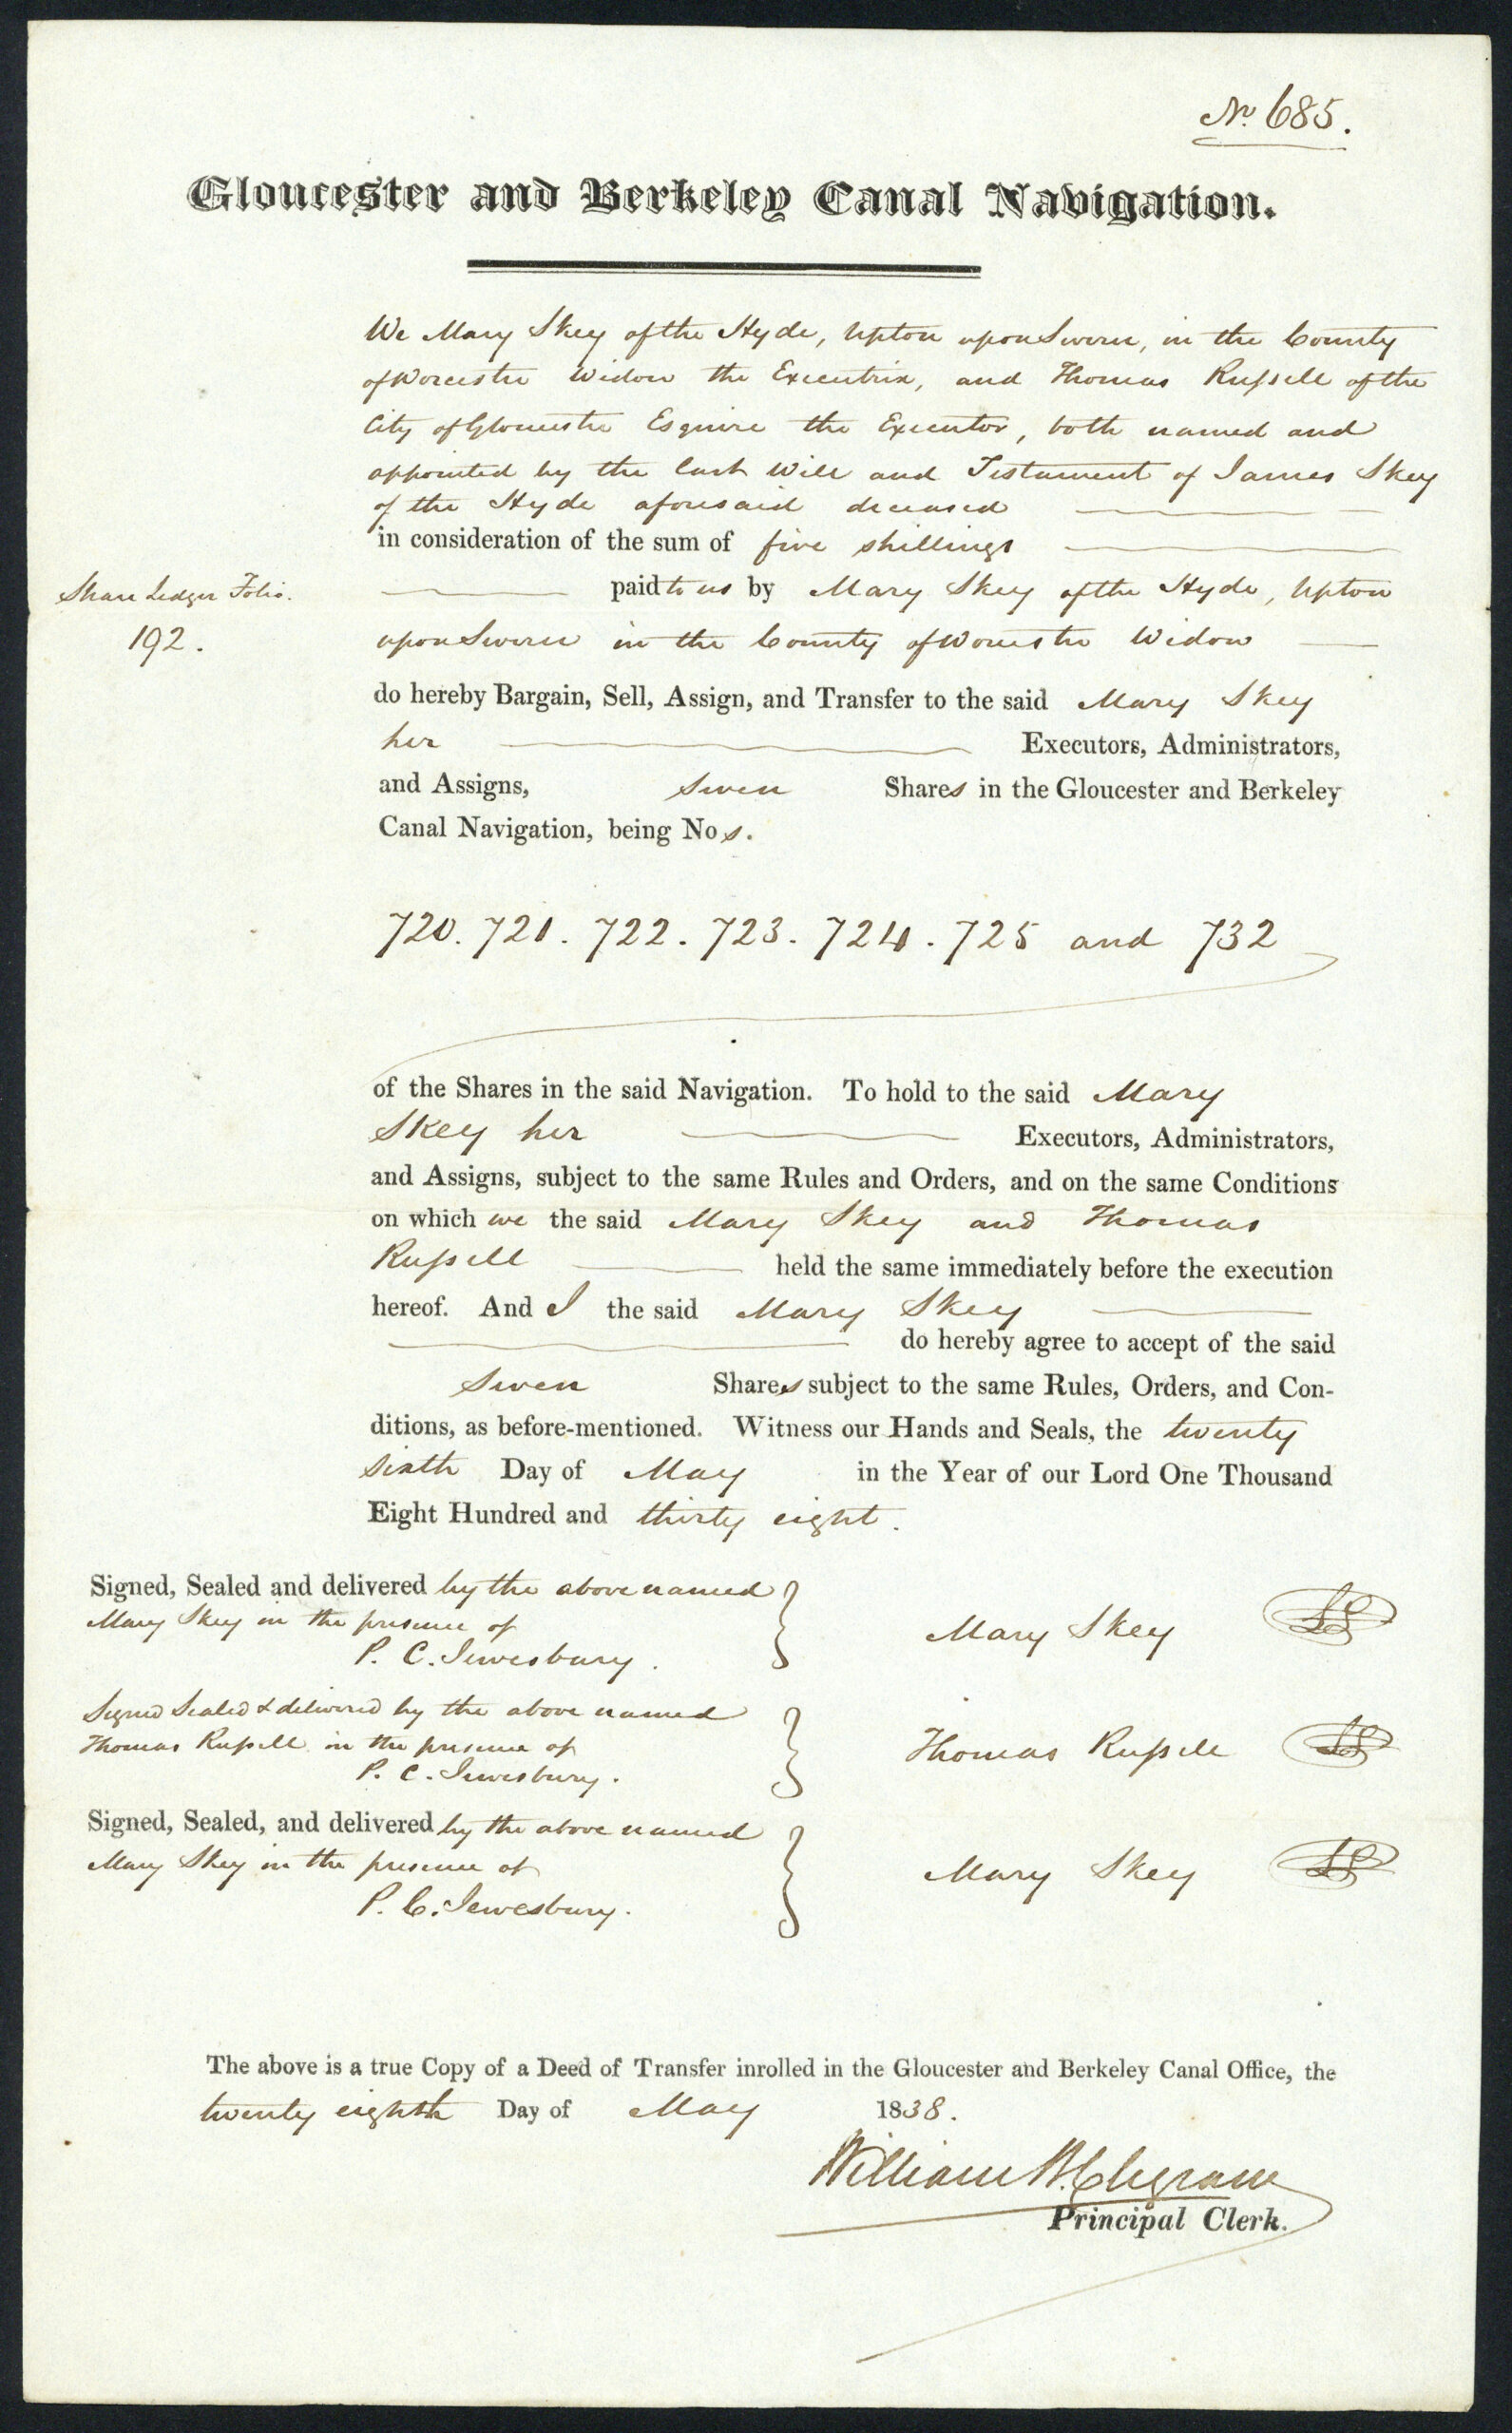 No. 685.
Gloucester and Berkeley Canal Navigation.
We Mary Skey of the Hyde, Upton upon Severn, in the County
of Worcester Widow the Executrix, and Thomas Russell of the
City of Gloucester Esquire the Executor, both named and
appointed by the last Will and Testament of James Skey
of the Hyde aforesaid deceased
in consideration of the sum of five shillings
Share Ledger Folio.
192.
paid to us by Mary Skey of the Hyde, Upton
upon Severn in the County of Worcester Widow
do hereby Bargain, Sell, Assign, and Transfer to the said Mary Skey
her Executors, Administrators,
and Assigns, Seven Shares in the Gloucester and Berkeley
Canal Navigation, being Nos.
720. 721. 722. 723. 724. 725 and 732
of the Shares in the said Navigation. To hold to the said Mary
Skey her Executors, Administrators,
and Assigns, subject to the same Rules and Orders, and on the same Conditions
on which we the said Mary Skey and Thomas
Russell held the same immediately before the execution
hereof. And I the said Mary Skey
do hereby agree to accept of the said
Seven Shares subject to the same Rules, Orders, and Con-
ditions, as before-mentioned. Witness our Hands and Seals, the twenty
sixth Day of May in the Year of our Lord One Thousand
Eight Hundred and thirty eight.
Signed, Sealed and delivered by the above named
Mary Skey in the presence of
P. C. Jewesbury.
Mary Skey LS
Signed Sealed & delivered by the above named
Thomas Russell in the presence of
P. C. Jewesbury.
Thomas Russell LS
Signed, Sealed, and delivered by the above named
Mary Skey in the presence of
P. C. Jewesbury.
Mary Skey LS
The above is a true Copy of a Deed of Transfer inrolled in the Gloucester and Berkeley Canal Office, the
twenty eighth Day of May 1838.
William B. Clegram
Principal Clerk.